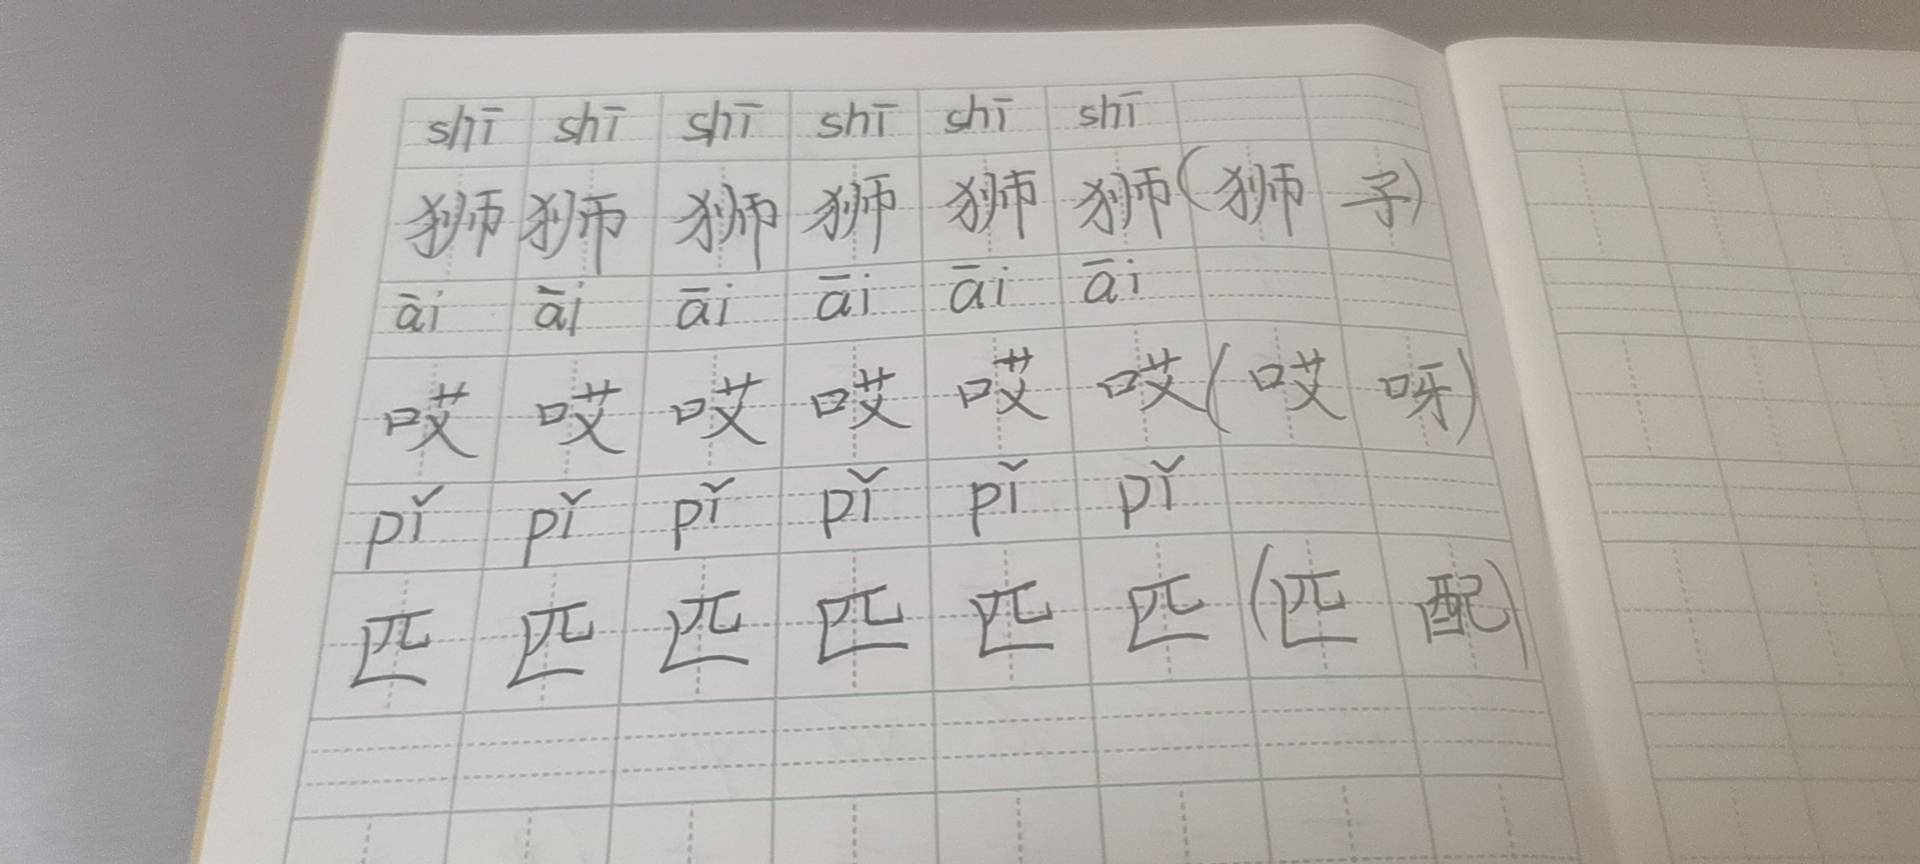 shī shī shī shī shī shī
狮 狮 狮 狮 狮 狮 (狮 子)
āi āi āi āi āi āi
哎 哎 哎 哎 哎 哎 (哎 呀)
pǐ pǐ pǐ pǐ pǐ pǐ
匹 匹 匹 匹 匹 匹 (匹 配)